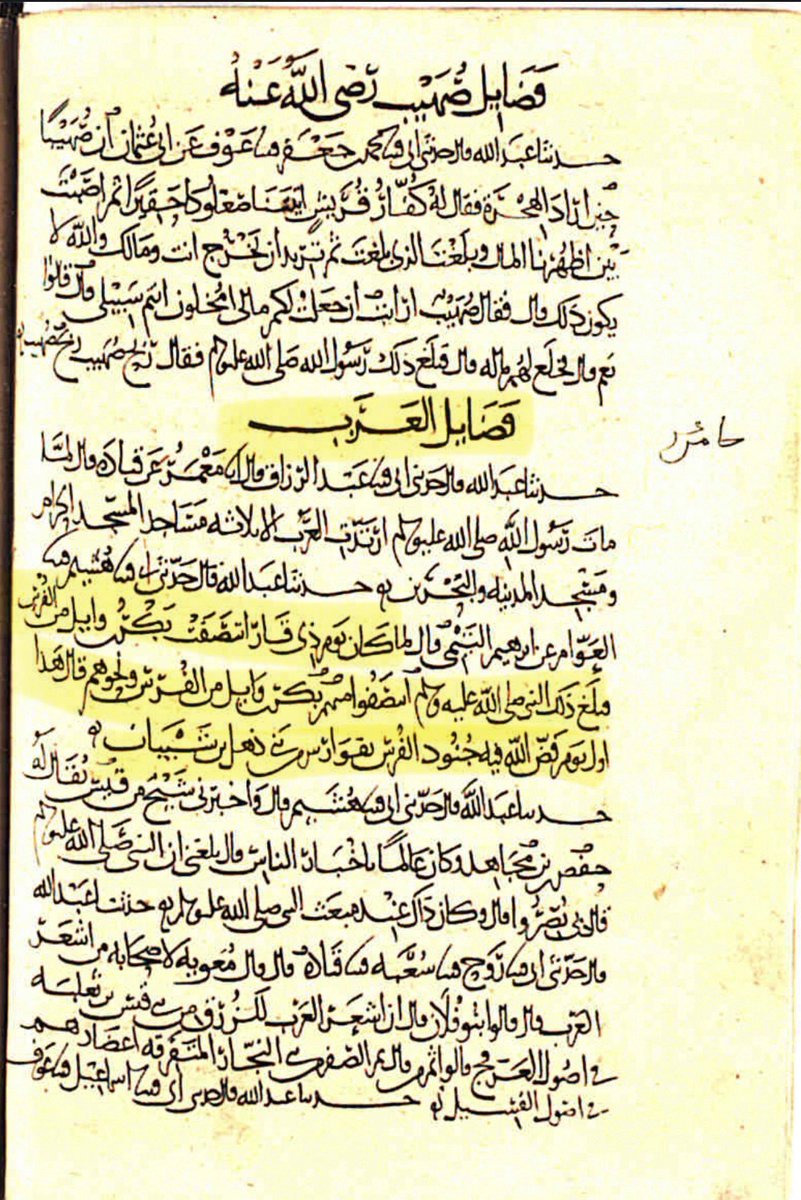 فضايل صهيب رضى الله عنه
حدثنا عبد الله قال حدثنى ابى قثنا محمد بن جعفر قثنا عوف عن ابى عثمان ان صهيبا
حين اراد الهجرة فقال له كفار قريش اتيتنا صعلوكا حقيرا ثم اصبت
بين اظهرنا المال وبلغت الذى بلغت ثم تريد ان تخرج انت ومالك والله لا
يكون ذلك قال فقال صهيب ارايتم ان جعلت لكم مالى امخلون انتم سبيلى قال قالوا
نعم قال فخلع لهم ماله قال فبلغ ذلك رسول الله صلى الله عليه وسلم فقال ربح صهيب ربح صهيب
فضايل العرب
حدثنا عبد الله قال حدثنى ابى قثنا عبد الرزاق قال انا معمر عن قتادة قال لما
مات رسول الله صلى الله عليه وسلم ارتدت العرب الا ثلاثة مساجد المسجد الحرام
ومسجد المدينة والبحرين حدثنا عبد الله قال حدثنى ابى قثنا هشيم قثنا
العوام عن ابرهيم التيمى قال لما كان يوم ذى قار انتصفت بكر بن وايل من الفرس
فبلغ ذلك النبى صلى الله عليه وسلم انتصفوا منهم بكر بن وايل من الفرس ونحوهم قال هذا
اول يوم فض الله فيه جنود الفرس بفوارس من بنى ذهل بن شيبان
حدثنا عبد الله قال حدثنى ابى قثنا هشيم قال واخبرنى شيخ من قيس يقال له
حفص بن مجاهد وكان عالما باخبار الناس قال بلغنى ان النبى صلى الله عليه وسلم
قال بى نصروا قال وكان ذاك عند مبعث النبى صلى الله عليه وسلم حدثنا عبد الله
قال حدثنى ابى قثنا روح قثنا شعبة قثنا قتادة قال قال معوية لاصحابه من اشعر
العرب قال قالوا بنو فلان قال ان اشعر العرب للزرق من بنى قيس بن ثعلبة
فى اصول العرفج قالوا ثم من قال ثم الصفر من بنى النجار المتفرقة اعضادهم
فى اصول الفسيل حدثنا عبد الله قال حدثنى ابى قثنا اسماعيل قثنا عوف